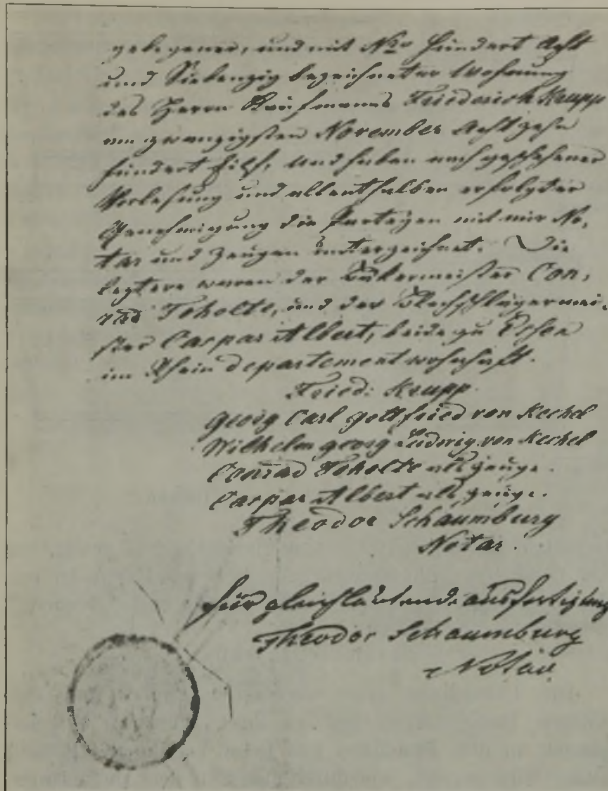 gelegener, und mit Nro hundert Acht
und Siebenzig bezeichneter Wohnung
des Herrn Kaufmanns Friederich Krupp
am zwanzigsten November Achtzehn
hundert Eilf, und haben nach geschehener
Vorlesung und allenthalben erfolgter
Genehmigung die Parteyen mit mir No,
tar und Zeugen unterzeichnet. Die
letztere waren der Bäkermeister Con,
rad Toholte, und der Blechschlägermei,
ster Caspar Albert, beide zu Essen
im Rhein departement wohnhaft.
Fried: Krupp.
Georg Carl Gottfried von Kechel
Wilhelm Georg Ludwig von Kechel
Conrad Toholte als Zeuge.
Caspar Albert als Zeuge.
Theodor Schaumburg
Notar.
für gleichlautende Ausfertigung
Theodor Schaumburg
Notar